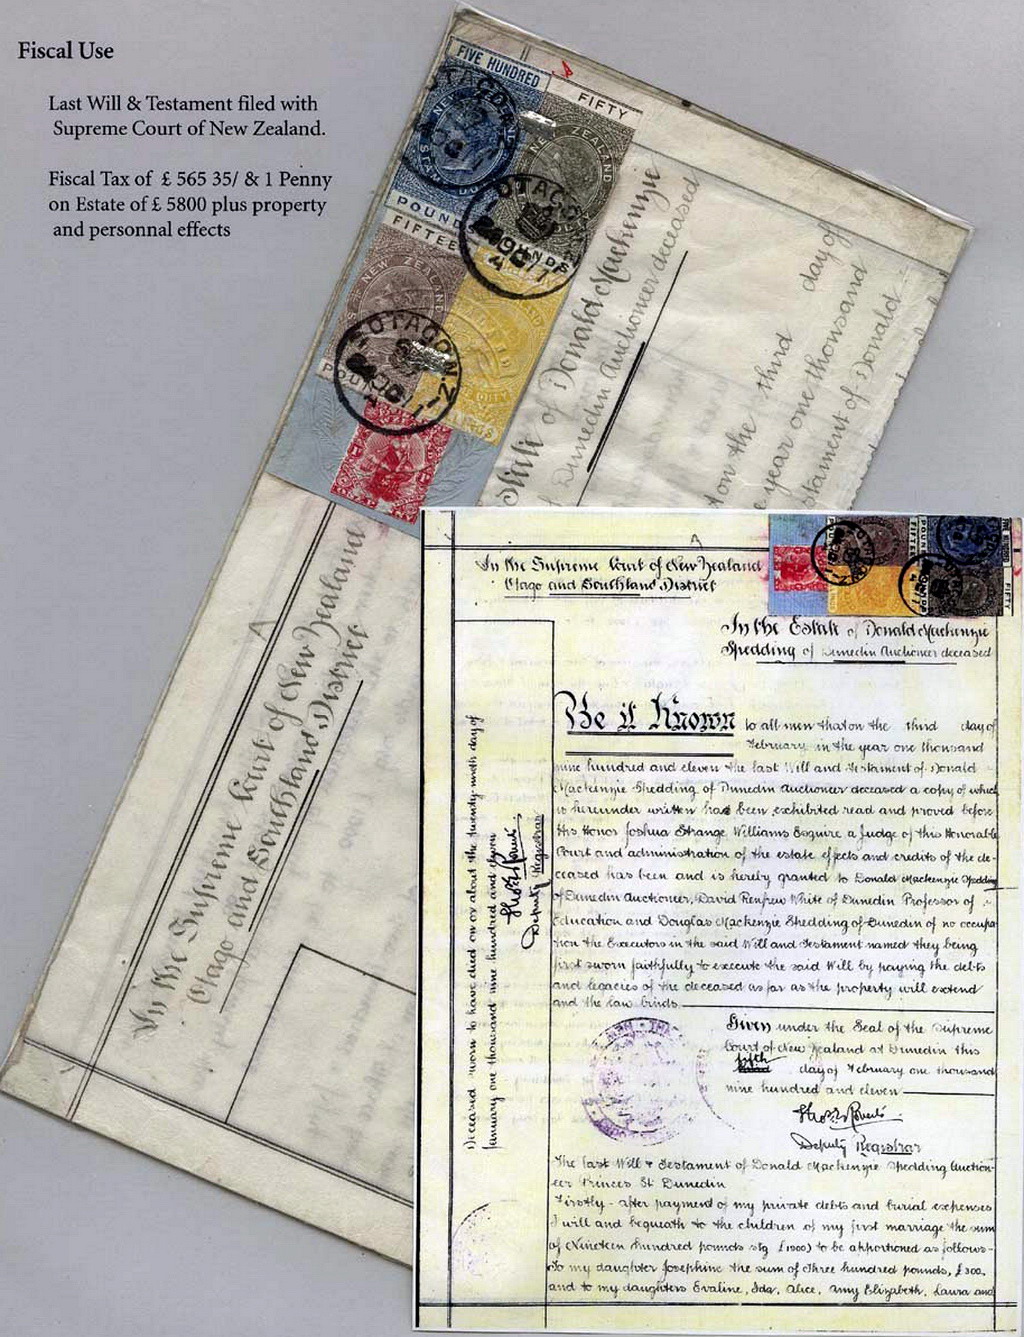 Fiscal Use
Last Will & Testament filed with
Supreme Court of New Zealand.
Fiscal Tax of £ 565 35/ & 1 Penny
on Estate of £ 5800 plus property
and personnal effects
FIVE HUNDRED
POUNDS
FIFTY
FIFTEEN
NEW ZEALAND
OTAGO N.Z.
Estate of Donald Mackenzie
of Dunedin Auctioneer deceased
on the third day of
year one thousand
stament of Donald
In the Supreme Court of New Zealand
Otago and Southland District
In the Supreme Court of New Zealand
Otago and Southland District
In the Estate of Donald Mackenzie
Spedding of Dunedin Auctioneer deceased
Be it Known to all men that on the third day of
February in the year one thousand
nine hundred and eleven the last Will and Testament of Donald
Mackenzie Spedding of Dunedin Auctioneer deceased a copy of which
is hereunder written has been exhibited read and proved before
His Honor Joshua Strange Williams Esquire a Judge of this Honorable
Court and administration of the estate effects and credits of the de-
ceased has been and is hereby granted to Donald Mackenzie Spedding
of Dunedin Auctioneer, David Renfrew White of Dunedin Professor of
Education and Douglas Mackenzie Spedding of Dunedin of no occupa-
tion the Executors in the said Will and Testament named they being
first sworn faithfully to execute the said Will by paying the debts
and legacies of the deceased as far as the property will extend
and the law binds
Given under the Seal of the Supreme
Court of New Zealand at Dunedin this
fifth day of February one thousand
nine hundred and eleven
Deputy Registrar
Deceased sworn to have died on or about the twenty-ninth day of
January one thousand nine hundred and eleven
Deputy Registrar
The last Will & Testament of Donald Mackenzie Spedding Auction-
eer Princes St Dunedin
Firstly - after payment of my private debts and burial expenses
I will and bequeath to the children of my first marriage the sum
of Nineteen hundred pounds stg £1900) to be apportioned as follows-
To my daughter Josephine the sum of Three hundred pounds, £300,
and to my daughters Evaline, Ida, Alice, Amy Elizabeth, Laura and